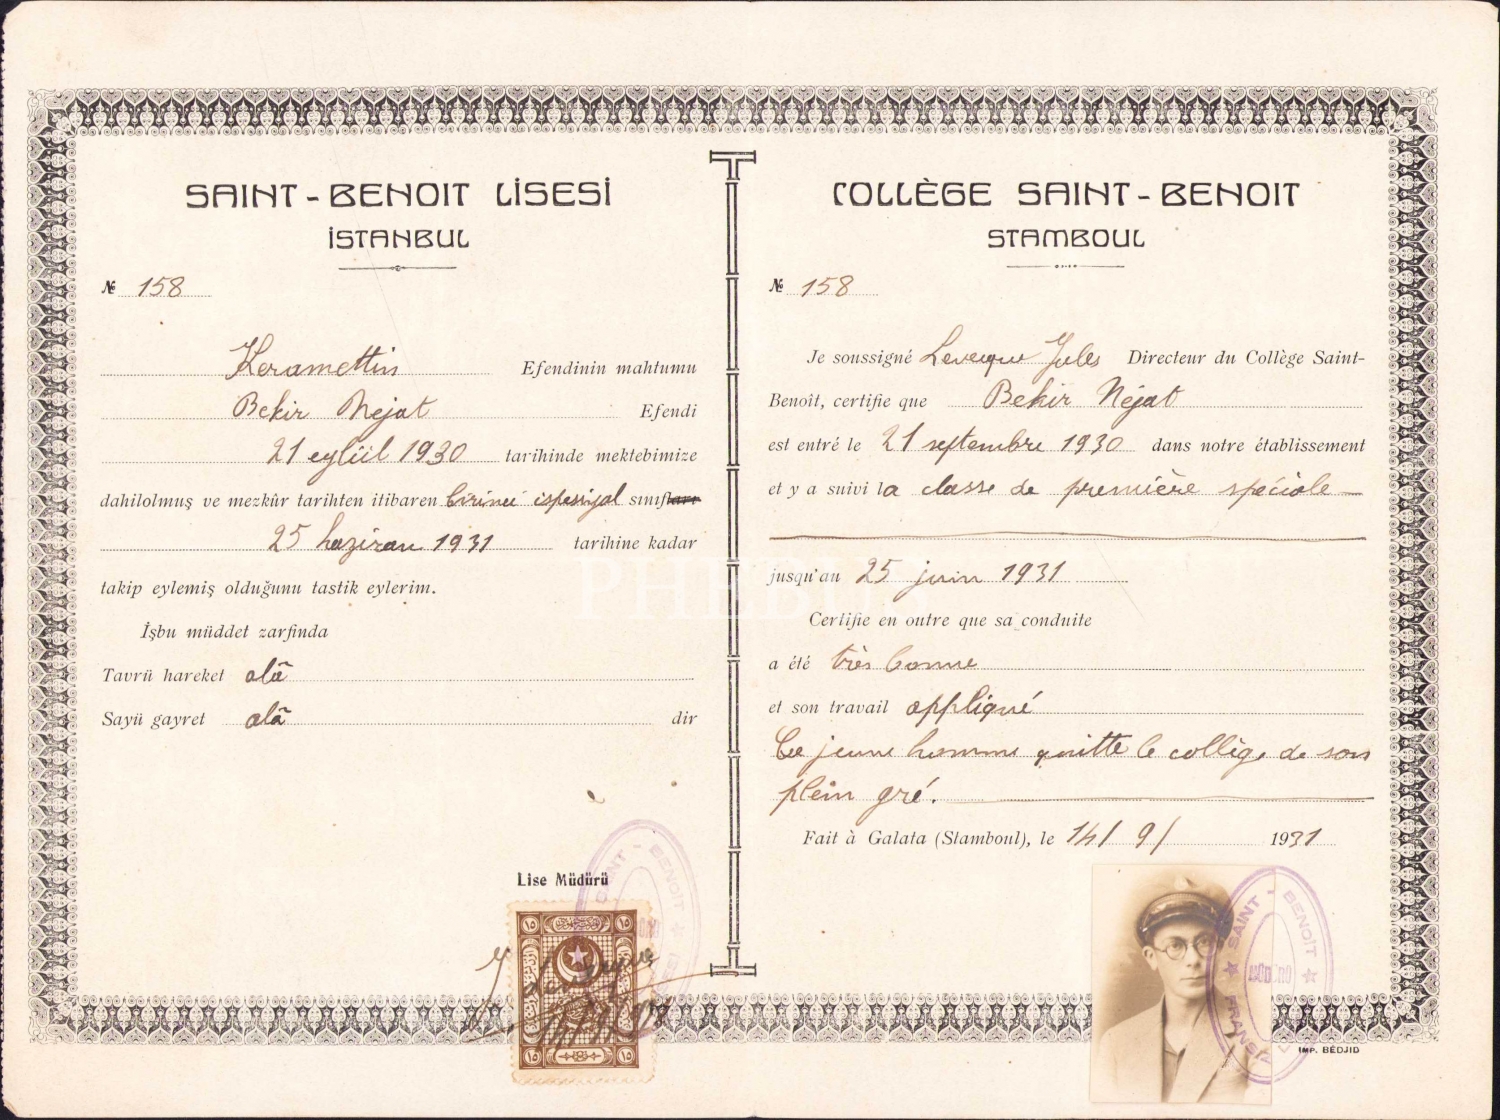 SAINT - BENOIT LİSESİ
İSTANBUL
№ 158
Keramettin Efendinin mahtumu
Bekir Nejat Efendi
21 eylül 1930 tarihinde mektebimize
dahilolmuş ve mezkûr tarihten itibaren birinci ispesiyal sınıfları
25 haziran 1931 tarihine kadar
takip eylemiş olduğunu tastik eylerim.
İşbu müddet zarfında
Tavrü hareket alâ
Sayü gayret alâ dir
Lise Müdürü
SAINT - BENOIT
١٥ ١٥
١٥ ١٥
COLLÈGE SAINT - BENOIT
STAMBOUL
№ 158
Je soussigné Leveque Jules Directeur du Collège Saint-
Benoît, certifie que Bekir Néjat
est entré le 21 septembre 1930 dans notre établissement
et y a suivi la classe de première spéciale
jusqu'au 25 juin 1931
Certifie en outre que sa conduite
a été très bonne
et son travail appliqué
Ce jeune homme quitte le collège de son
plein gré.
Fait à Galata (Stamboul), le 14/ 9/ 1931
SAINT - BENOIT
IMP. BÉDJID
PHEBUS